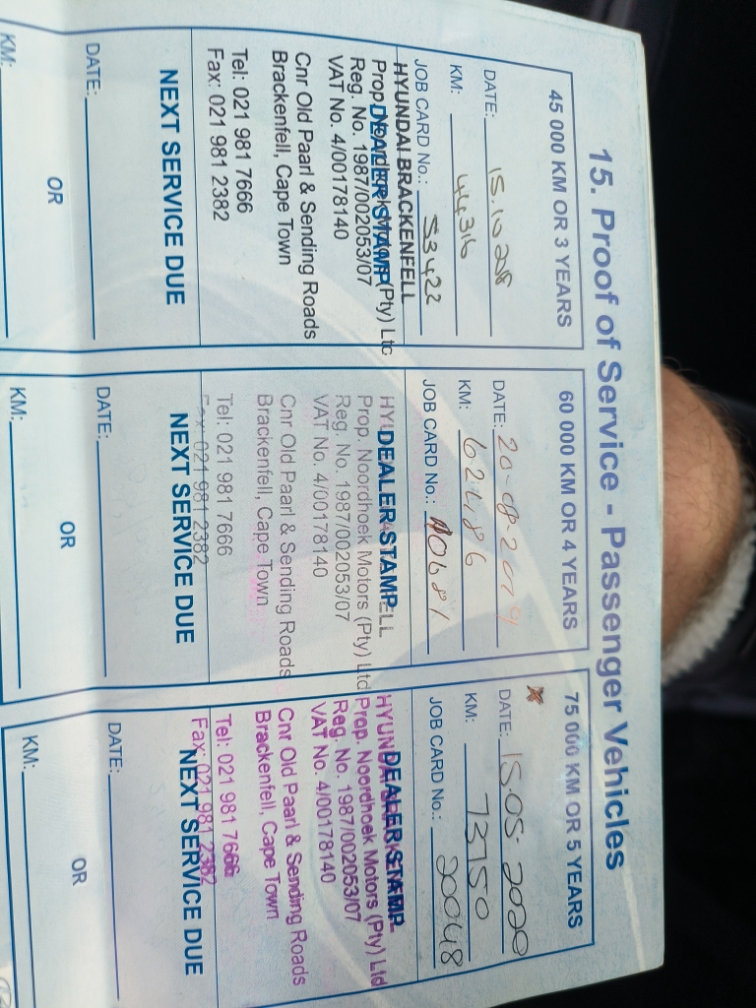 15. Proof of Service - Passenger Vehicles
45 000 KM OR 3 YEARS
DATE: 15.10.2018
KM: 44316
JOB CARD No.: 53422
HYUNDAI BRACKENFELL
DEALER STAMP
Prop. Noordhoek Motors (Pty) Ltd
Reg. No. 1987/002053/07
VAT No. 4/00178140
Cnr Old Paarl & Sending Roads
Brackenfell, Cape Town
Tel: 021 981 7666
Fax: 021 981 2382
NEXT SERVICE DUE
DATE:
OR
KM:
60 000 KM OR 4 YEARS
DATE: 20-08-2019
KM: 62486
JOB CARD No.: A0681
DEALER STAMP
Prop. Noordhoek Motors (Pty) Ltd
Reg. No. 1987/002053/07
VAT No. 4/00178140
Cnr Old Paarl & Sending Roads
Brackenfell, Cape Town
Tel: 021 981 7666
Fax: 021 981 2382
NEXT SERVICE DUE
DATE:
OR
KM:
75 000 KM OR 5 YEARS
DATE: 15.05.2020
KM: 73750
JOB CARD No.: 20048
DEALER STAMP
Prop. Noordhoek Motors (Pty) Ltd
Reg. No. 1987/002053/07
VAT No. 4/00178140
Cnr Old Paarl & Sending Roads
Brackenfell, Cape Town
Tel: 021 981 7666
Fax: 021 981 2382
NEXT SERVICE DUE
DATE:
OR
KM: